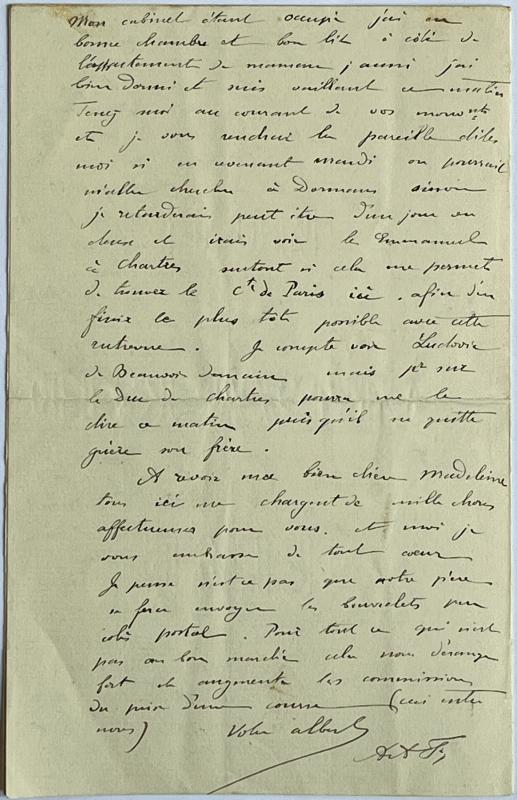 Mon cabinet étant occupé j'ai eu
bonne chambre et bon lit à côté de
l'appartement de maman j'aussi j'ai
bien dormi et suis vaillant ce matin
Tenez moi au courant de vos mouvts
et je vous rendrai la pareille dites
moi si en revenant mardi on pourrait
m'aller chercher à Dormans sinon
je retarderais peut être d'un jour ou
deux et irais voir le Emmanuel
à Chartres surtout si cela me permet
de trouver le Cte de Paris ici. afin d'en
finir le plus tôt possible avec cette
entrevue. Je compte voir Ludovic
de Beauvoir demain mais
le Duc de Chartres pourra me le
dire ce matin puisqu'il ne quitte
guère son frère.
A revoir ma bien chère Madeleine
tous ici me chargent de mille choses
affectueuses pour vous. et moi je
vous embrasse de tout coeur
Je pense n'est ce pas que votre père
se fera envoyer les par
colis postal. Pour tout ce qui n'est
pas au bon marché cela nous dérange
fort et augmente les commissions
du prix d'une course (ceci entre
nous) Votre albert